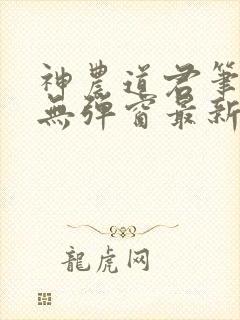 神農道君筆
無彈窗最新
龍虎网